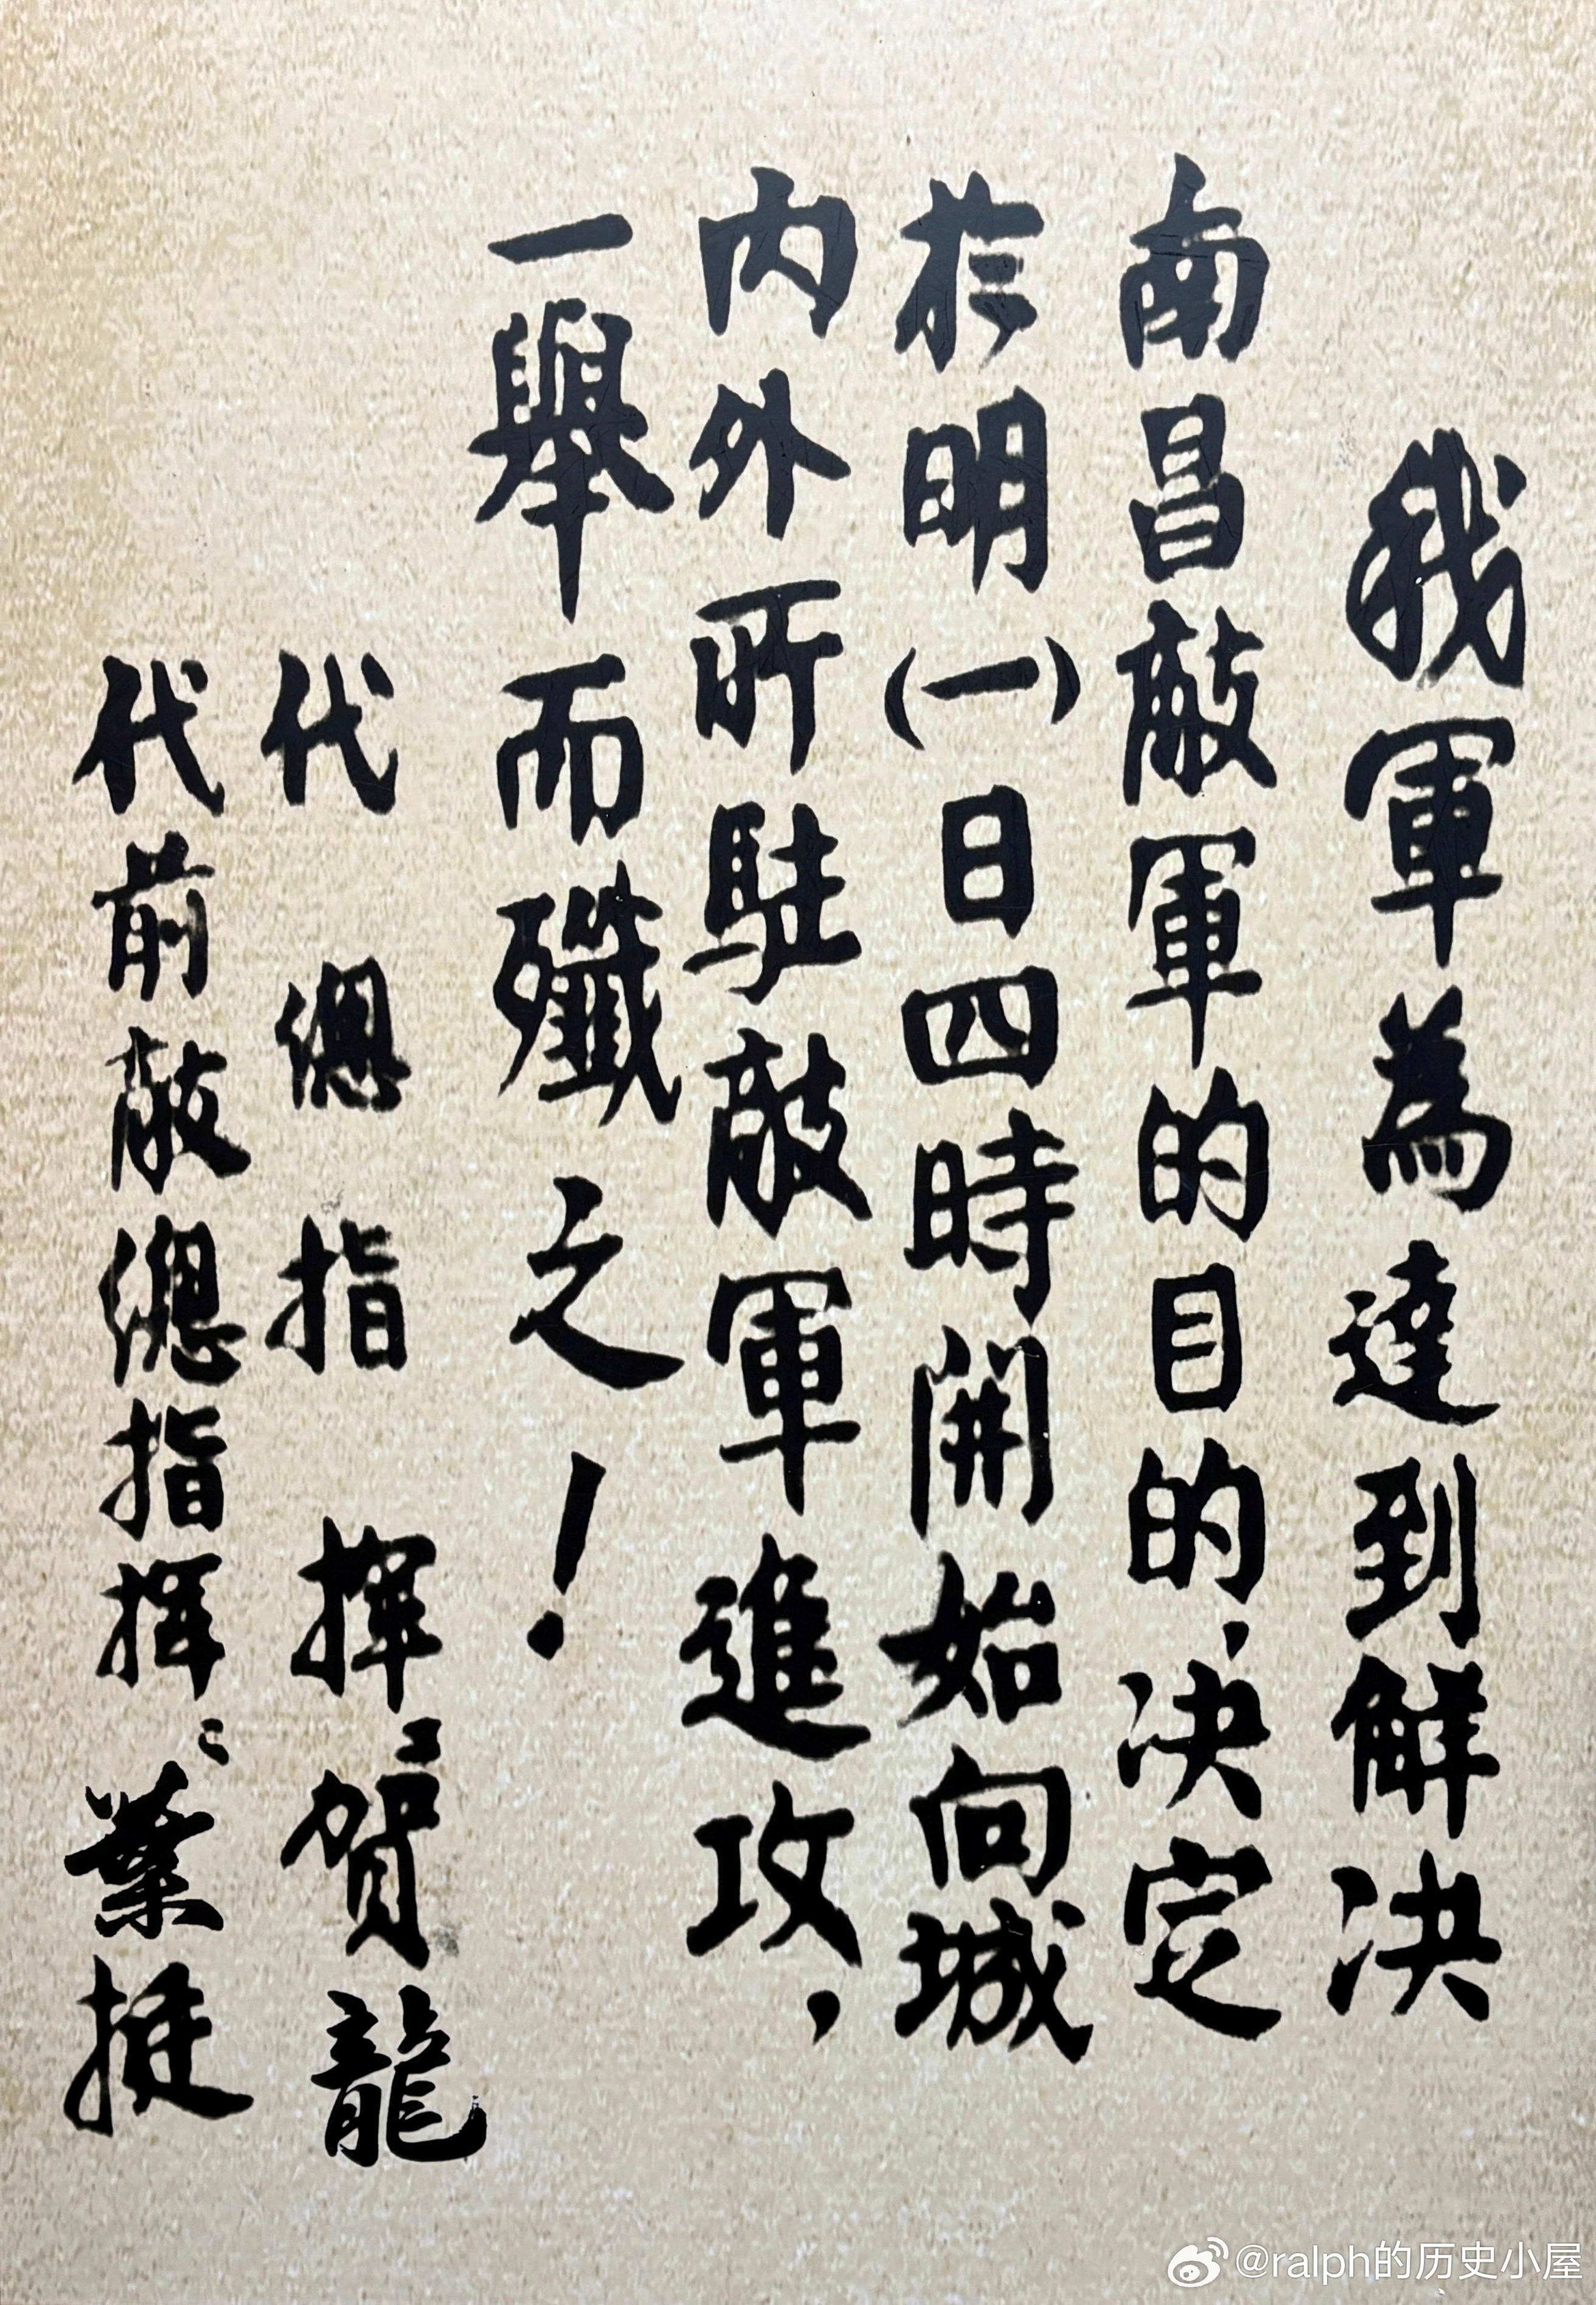 我軍為達到解決
南昌敵軍的目的,决定
於明(一)日四時開始向城
內外所駐敵軍進攻,
一舉而殲之!
代總指揮:賀龍
代前敵總指揮:葉挺
@ralph的历史小屋